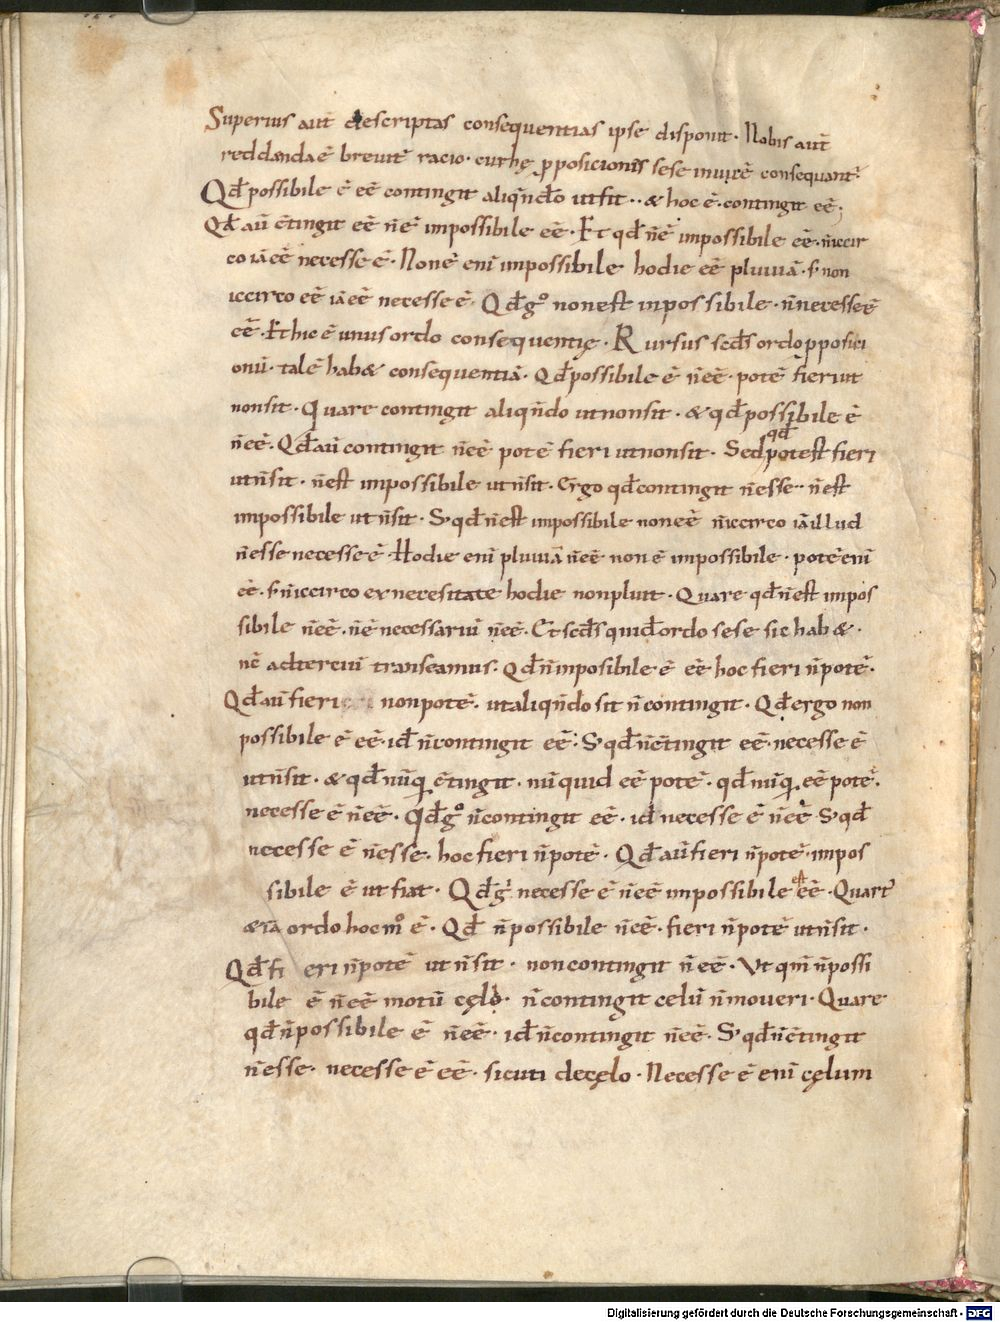 Superius aut̄ descriptas consequentias ipse disponit · Nobis aut̄
reddenda ē breuit̄ racio · cur hę ꝓposicionis sese inuicē consequant̄ ·
Qd̄ possibile ē eē contingit aliqn̄do ut fit · · & hoc ē · contingit eē ;
Qd̄ aū c̄tingit eē n̄ ē impossibile eē · Et qd̄ n̄ ē impossibile eē · n̄ iccir
co iā eē necesse ē · Non ē eni impossibile hodie eē pluuiā · s; non
iccirco eē iā eē necesse ē · Qd̄ gͦ non est inpossibile · n̄ necesse ē
eē · Et hic ē unus ordo consequentię · Rursus scd̄s ordo pposici
onū · talē hab& consequentiā · Qd̄ possibile ē n̄ eē · potē fieri ut
non sit · Quare contingit aliqn̄do ut non sit · & qd̄ possibile ē
n̄ eē · Qd̄ aū contingit n̄ eē potē fieri ut non sit · Sed qd̄ potest fieri
ut n̄ sit · n̄ est impossibile ut n̄ sit · Ergo qd̄ contingit n̄ esse · n̄ est
impossibile ut n̄ sit · S; qd̄ n̄ est impossibile non eē n̄ iccirco iā illud
n̄ esse necesse ē · Hodie eni pluuiā n̄ eē non ē impossibile · potē eni
eē · s; n̄ iccirco ex necesitate hodie non pluit · Quare qd̄ n̄ est impos
sibile n̄ eē · n̄ ē necessariū n̄ eē · Et scd̄s quid̄ ordo sese sic hab& ·
nc̄ ad terciū transeamus · Qd̄ n̄ imposibile ē eē hoc fieri n̄ potē ·
Qd̄ aū fieri non potē · ut aliqn̄do sit n̄ contingit · Qd̄ ergo non
possibile ē eē · id̄ n̄ contingit eē · S; qd̄ n̄ c̄tingit eē · necesse ē
ut n̄ sit · & qd̄ nūq̨ c̄tingit · nūquid eē potē · qd̄ nūq̨ eē potē ·
necesse ē n̄ eē · Qd̄ gͦ n̄ contingit eē · id̄ necesse ē n̄ eē S; qd̄
necesse ē n̄ esse · hoc fieri n̄ potē · Qd̄ aū fieri n̄ potē · impos
sibile ē ut fiat · Qd̄ g̾ necesse ē n̄ eē impossibile est eē · Quart̾
&iā ordo hoc mͦ ē · Qd̄ n̄ possibile n̄ eē · fieri n̄ potē ut n̄ sit ·
Qd̄ fi eri n̄ potē ut n̄ sit · non contingit n̄ eē · Ut qm̄ n̄ possi
bile ē n̄ eē motū cęlo · n̄ contingit celū n̄ moueri · Quare
qd̄ n̄ possibile ē n̄ eē · id̄ n̄ contingit n̄ eē · S; qd̄ n̄ c̄tingit
n̄ esse · necesse ē eē · sicuti de cęlo · Necesse ē eni cęlum
Digitalisierung gefördert durch die Deutsche Forschungsgemeinschaft - DFG